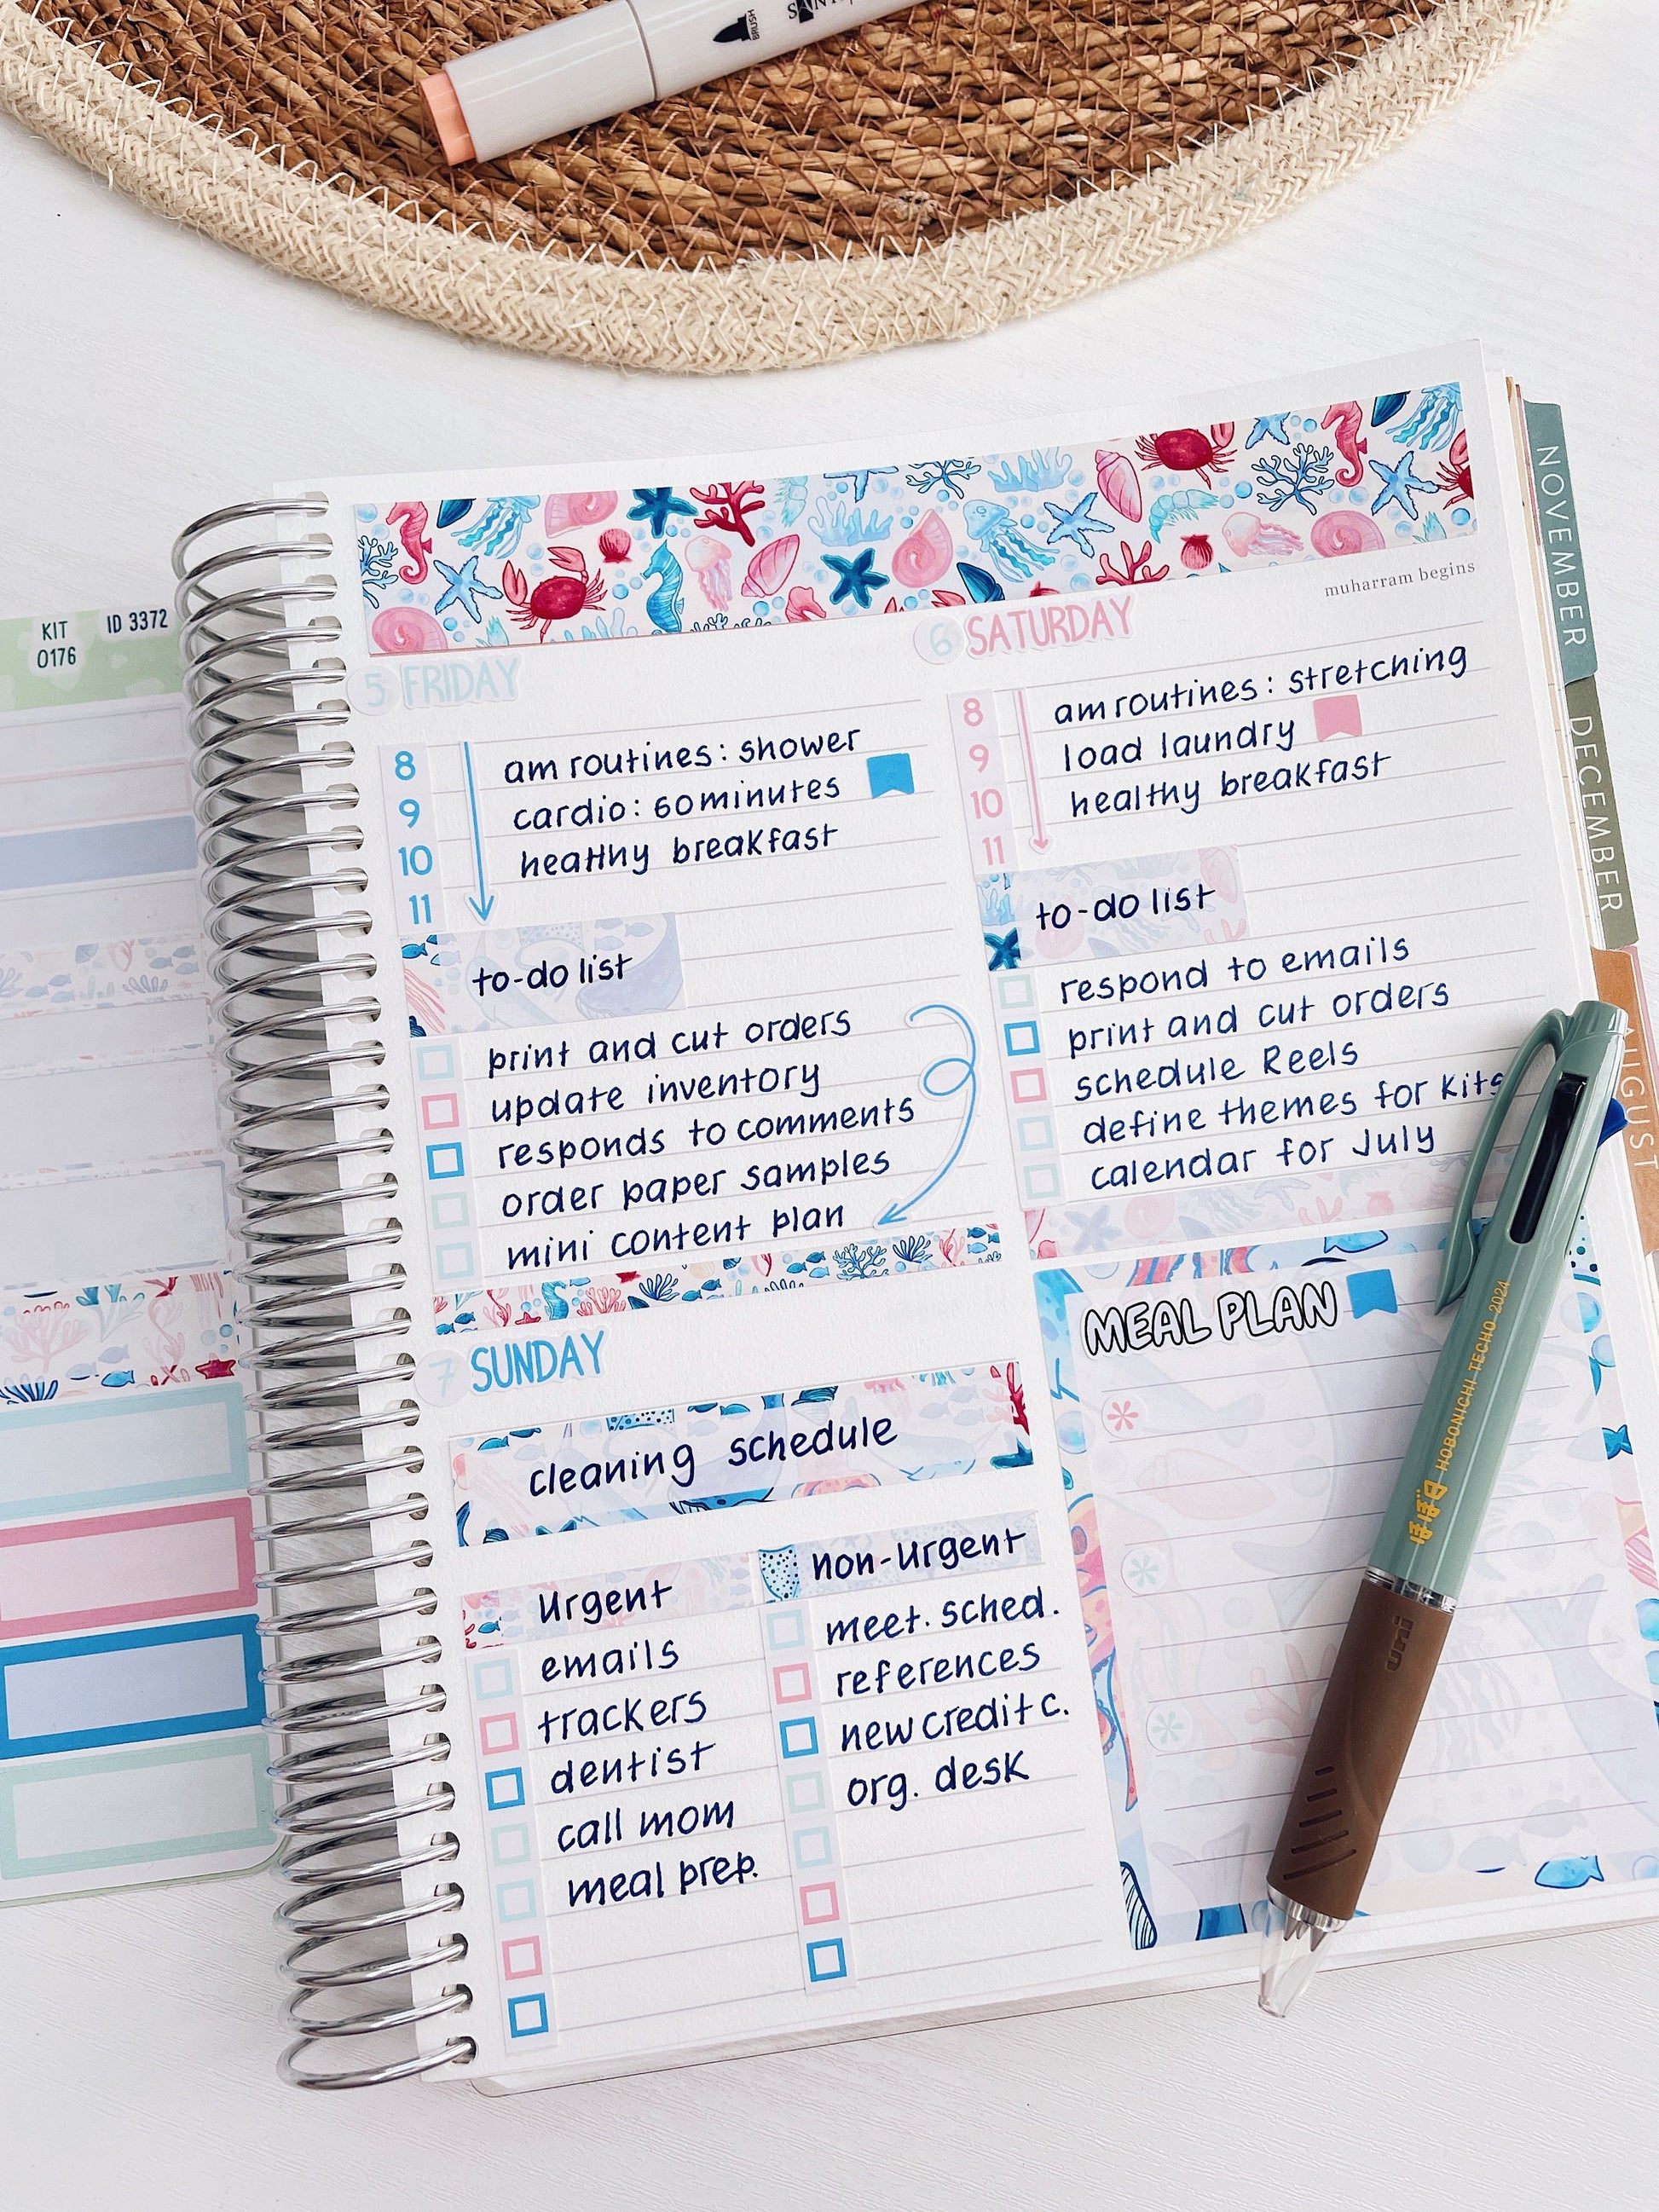 BRUSH
KIT
0176
ID 3372
muharram begins
5 FRIDAY
8
9
10
11
am routines: shower
cardio: 60minutes
healthy breakfast
to-do list
print and cut orders
update inventory
responds to comments
order paper samples
mini content plan
6 SATURDAY
8
9
10
11
am routines: stretching
load laundry
healthy breakfast
to-do list
respond to emails
print and cut orders
schedule Reels
define themes for kits
calendar for July
7 SUNDAY
cleaning schedule
urgent
emails
trackers
dentist
call mom
meal prep.
non-urgent
meet. sched.
references
new credit c.
org. desk
MEAL PLAN
NOVEMBER
DECEMBER
AUGUST
ほぼ日 HOBONICHI TECHO 2024
uni